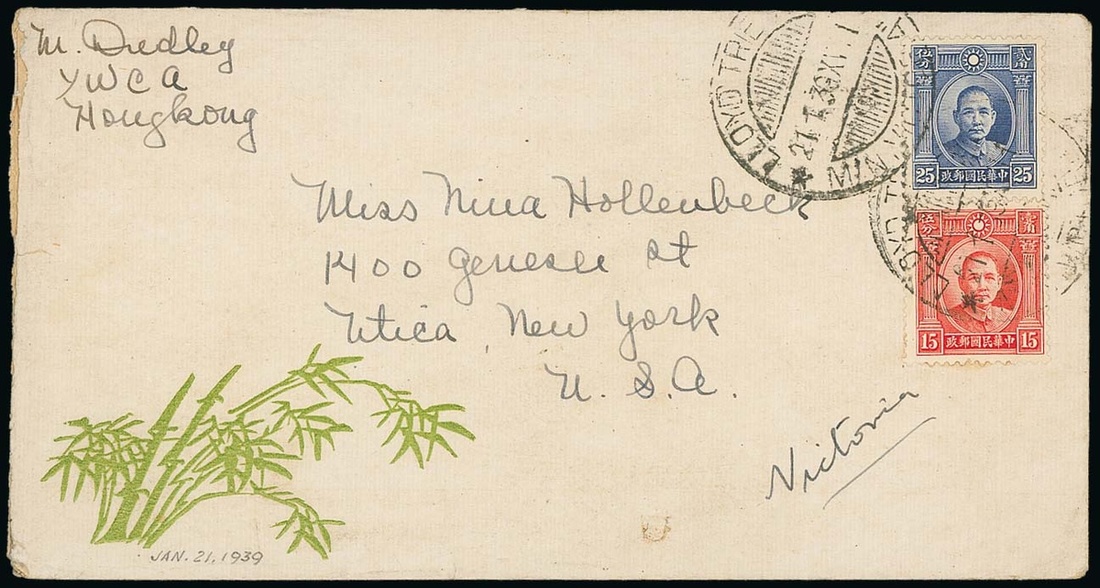 M. Dudley
YWCA
Hongkong
LLOYD TRIE
21.1.39 XVII
25 中華民國郵政 25
15 中華民國郵政 15
Miss Nina Hollenbeck
1400 Genesee St
Utica, New York
U.S.A.
Victoria
JAN. 21, 1939